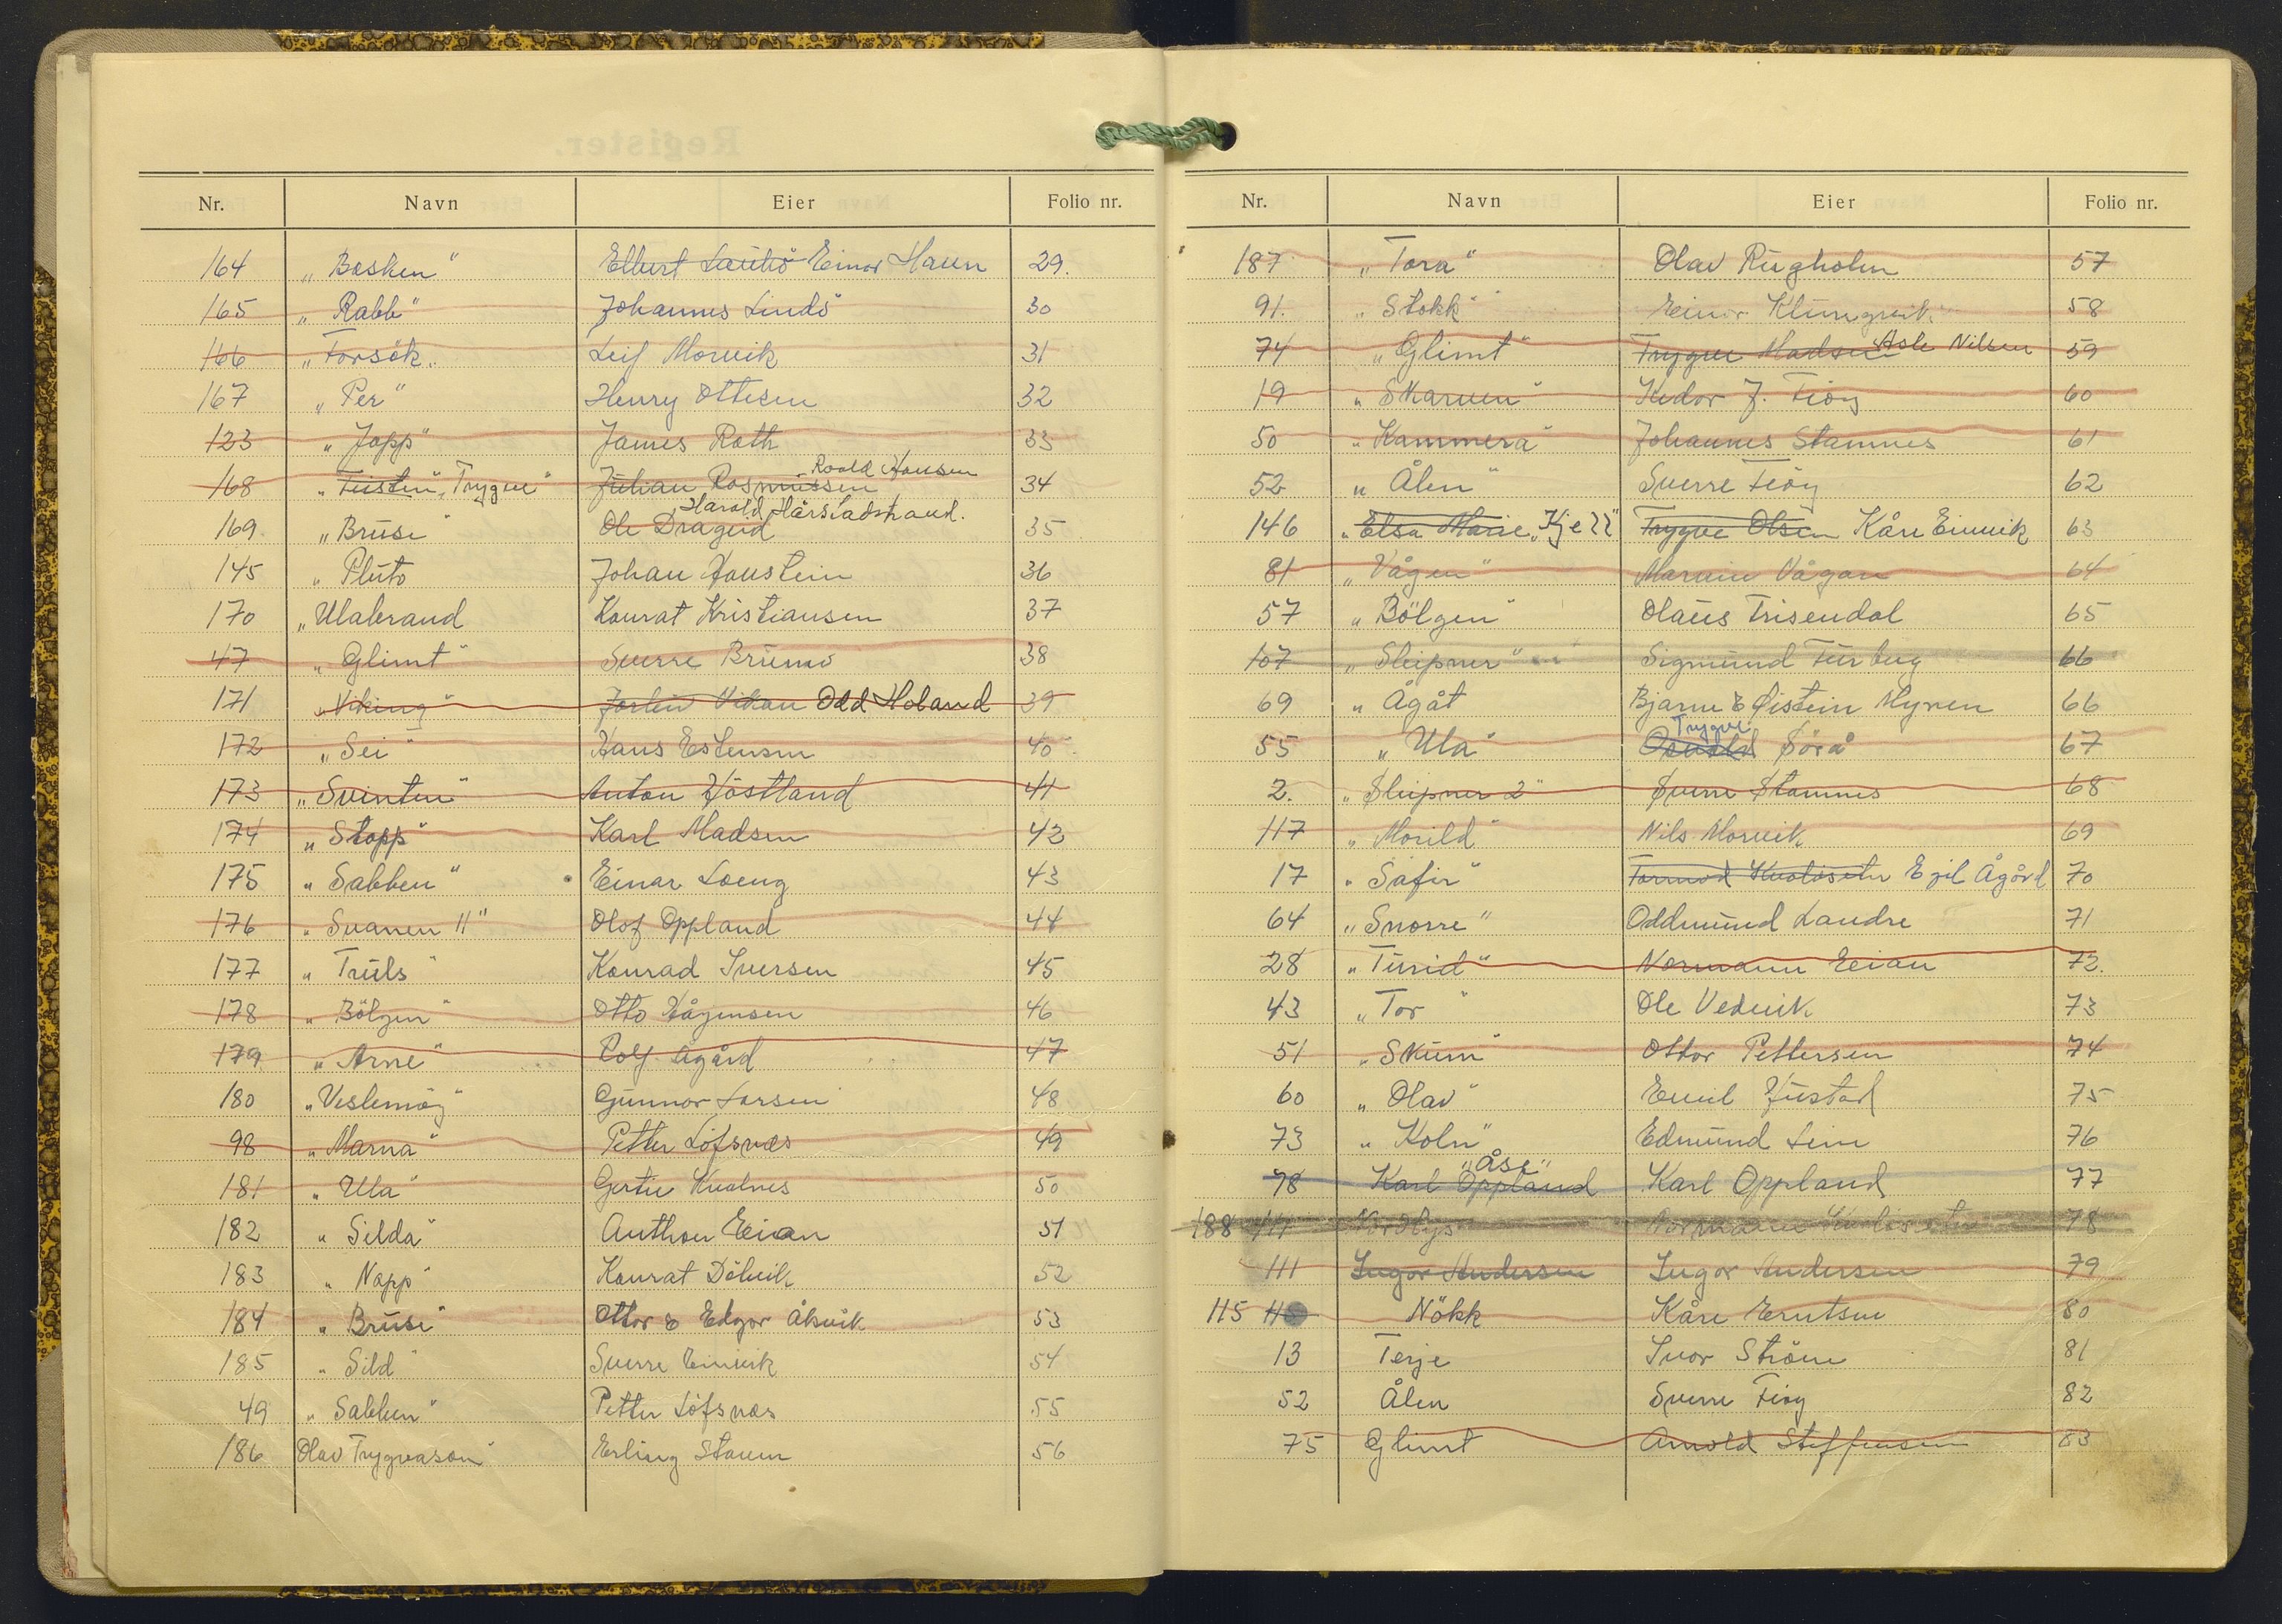 Nr. Navn Eier Folio nr.
164 „Basken" Elbert Lauhö Einar Haun 29.
165 „Rabb" Johannes Lindö 30
166 „Forsök„ Leif Morvik 31
167 „Per" Henry Ottesen 32
123 „Jopp" James Roth 33
Roald Hansen
168 „Teisten" „Trygve" Julian Rasmussen 34
Harald Hårstadstrand.
169 „Bruse" Ole Drageid 35
145 „Pluto Johan Haustein 36
170 „Ulabrand Konrat Kristiansen 37
47 „Glimt" Sverre Brunvo 38
171 „Viking" Vikan Odd Holand 39
172 „Sei" Hans Estensen 40
173 „Svinten" Anton Höstland 41
174 „Stopp" Karl Madsen 42
175 „Sabben" Einar Loeng 43
176 „Svanen II" Olof Oppland 44
177 „Truls" Konrad Iversen 45
178 „Bölgen" Otto Hågensen 46
179 „Arne" Rolf Ågård 47
180 „Veslemöy" Gunnar Larsen 48
98 „Marna" Petter Löfsnæs 49
181 „Ula" Gertie Kvalnes 50
182 „Silda" Anthon Eian 51
183 „Napp" Konrat Dölvik 52
184 „Bruse" Ottar & Edgar Åkvik 53
185 „Sild" Sverre Einvik 54
49 „Sabben" Petter Löfsnæs 55
186 Olav Trygvason" Erling Stavn 56
Nr. Navn Eier Folio nr.
187 „Tora" Olav Rugholm 57
91. „Stokk" Einar Klungrvik. 58
74 „Glimt" Trygve Madsen Asle Nilsen 59
19 „Skarven" Kedor J. Tiöy 60
50 „Kammera" Johannes Stamnes 61
52 „Ålen" Sverre Tiöy 62
146 „Elsa Marie „Kjell" Trygve Olsen Kåre Einvik 63
81 „Vågen" Marvin Vågan 64
57 „Bölgen" Olaus Trisendal 65
107 „Sleipner" Sigmund 66
69 „Ågåt Bjarne & Øistein Myren 66
Trygve
55 „Ula" Osvald Sörå 67
2. „Sleipner 2" Sverre Stamnes 68
117 „Morild" Nils Morvik 69
17 „Safir" Tormod Kvolöseter Egil Ågård 70
64 „Snorre" Oddmund Landre 71
28 „Turid" Normann Eian 72.
43 „Tor" Ole Vedvik 73
51 „Skum" Ottar Pettersen 74
60 „Olav" Emil Hustad 75
73 „Koln" Edmund Lein 76
„Åse„
78 Karl Oppland Karl Oppland 77
188 111 Nordlys Normann Kvolöseter 78
111 Ingor Andersen Ingor Andersen 79
115 Nökk Kåre Erntsen 80
13 Terje Ivar Ström 81
52 Ålen Sverre Tiöy 82
75 Glimt Arnold Steffensen 83